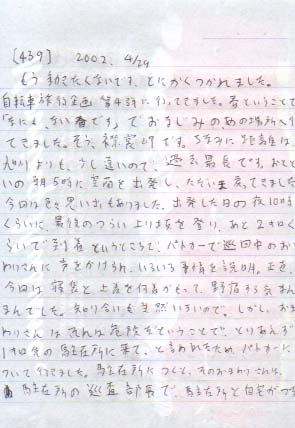 [439] 2002. 4/29
もう動きたくないです。とにかくつかれました。
自転車旅行企画 第43弾に行ってきました。春ということで
「なにも ない春です」でおなじみのあの場所へ行っ
てきました。そう、襟裳岬です。ちなみに距離は、
九州よりも、少し遠いので、過去最長です。おとと
いの朝5時に室蘭を出発し、ただいま戻ってきました
今回は色々思い出もありました。出発した日の夜10時
くらいに、最後のつらい上り坂を登り、あと2キロく
らいで到着というところで、パトカーで巡回中のおま
わりさんに声をかけられ、いろいろ事情を説明。正直、
今回は寝袋と上着を何着かもって、野宿する気まん
まんでした。知り合いも当然いないので。しかし、おま
わりさんは それは危険だということで、とりあえず
1キロ先の駐在所に来て、と言われたため、パトカーに
ついて行ってました。駐在所につくと、そのおまわりさんは、
駐在所の巡査部長で、駐在所と自宅がつな